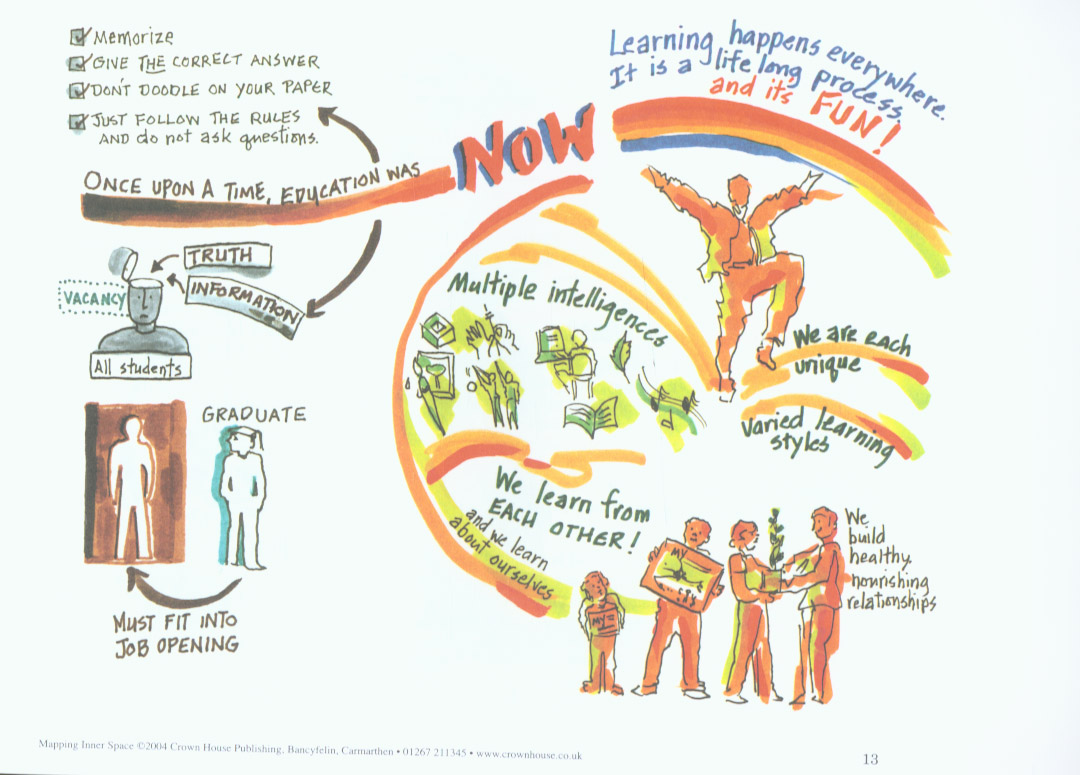 Memorize
GIVE THE CORRECT ANSWER
DON'T DOODLE ON YOUR PAPER
JUST FOLLOW THE RULES
AND do not ask questions.
ONCE UPON A TIME, EDUCATION WAS
TRUTH
INFORMATION
VACANCY
All students
GRADUATE
MUST FIT INTO
JOB OPENING
NOW
Learning happens everywhere.
It is a life long process.
and it's FUN!
Multiple intelligences
We are each
unique
varied learning
styles
We learn from
EACH OTHER!
and we learn
about ourselves
MY
MY
We
build
healthy
nourishing
relationships
Mapping Inner Space ©2004 Crown House Publishing, Bancyfelin, Carmarthen • 01267 211345 • www.crownhouse.co.uk
13